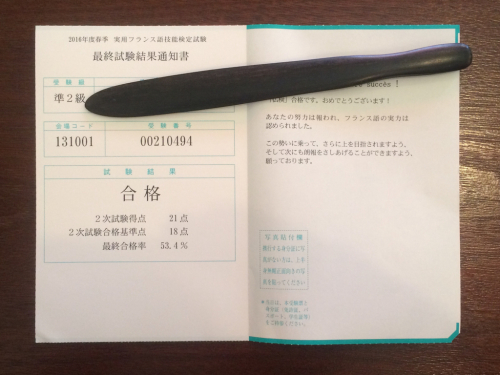 2018年度春季 実用フランス語技能検定試験
最終試験結果通知書
受験級
準2級
会場コード
受験番号
131001
00210494
試験結果
合格
2次試験得点 21点
2次試験合格基準点 18点
最終合格率 53.4%
succès !
合格です。おめでとうございます!
あなたの努力は報われ、フランス語の実力は
認められました。
この勢いに乗って、さらに上を目指されますよう、
そして次にも朗報をさしあげることができますよう、
願っております。
写真貼付欄